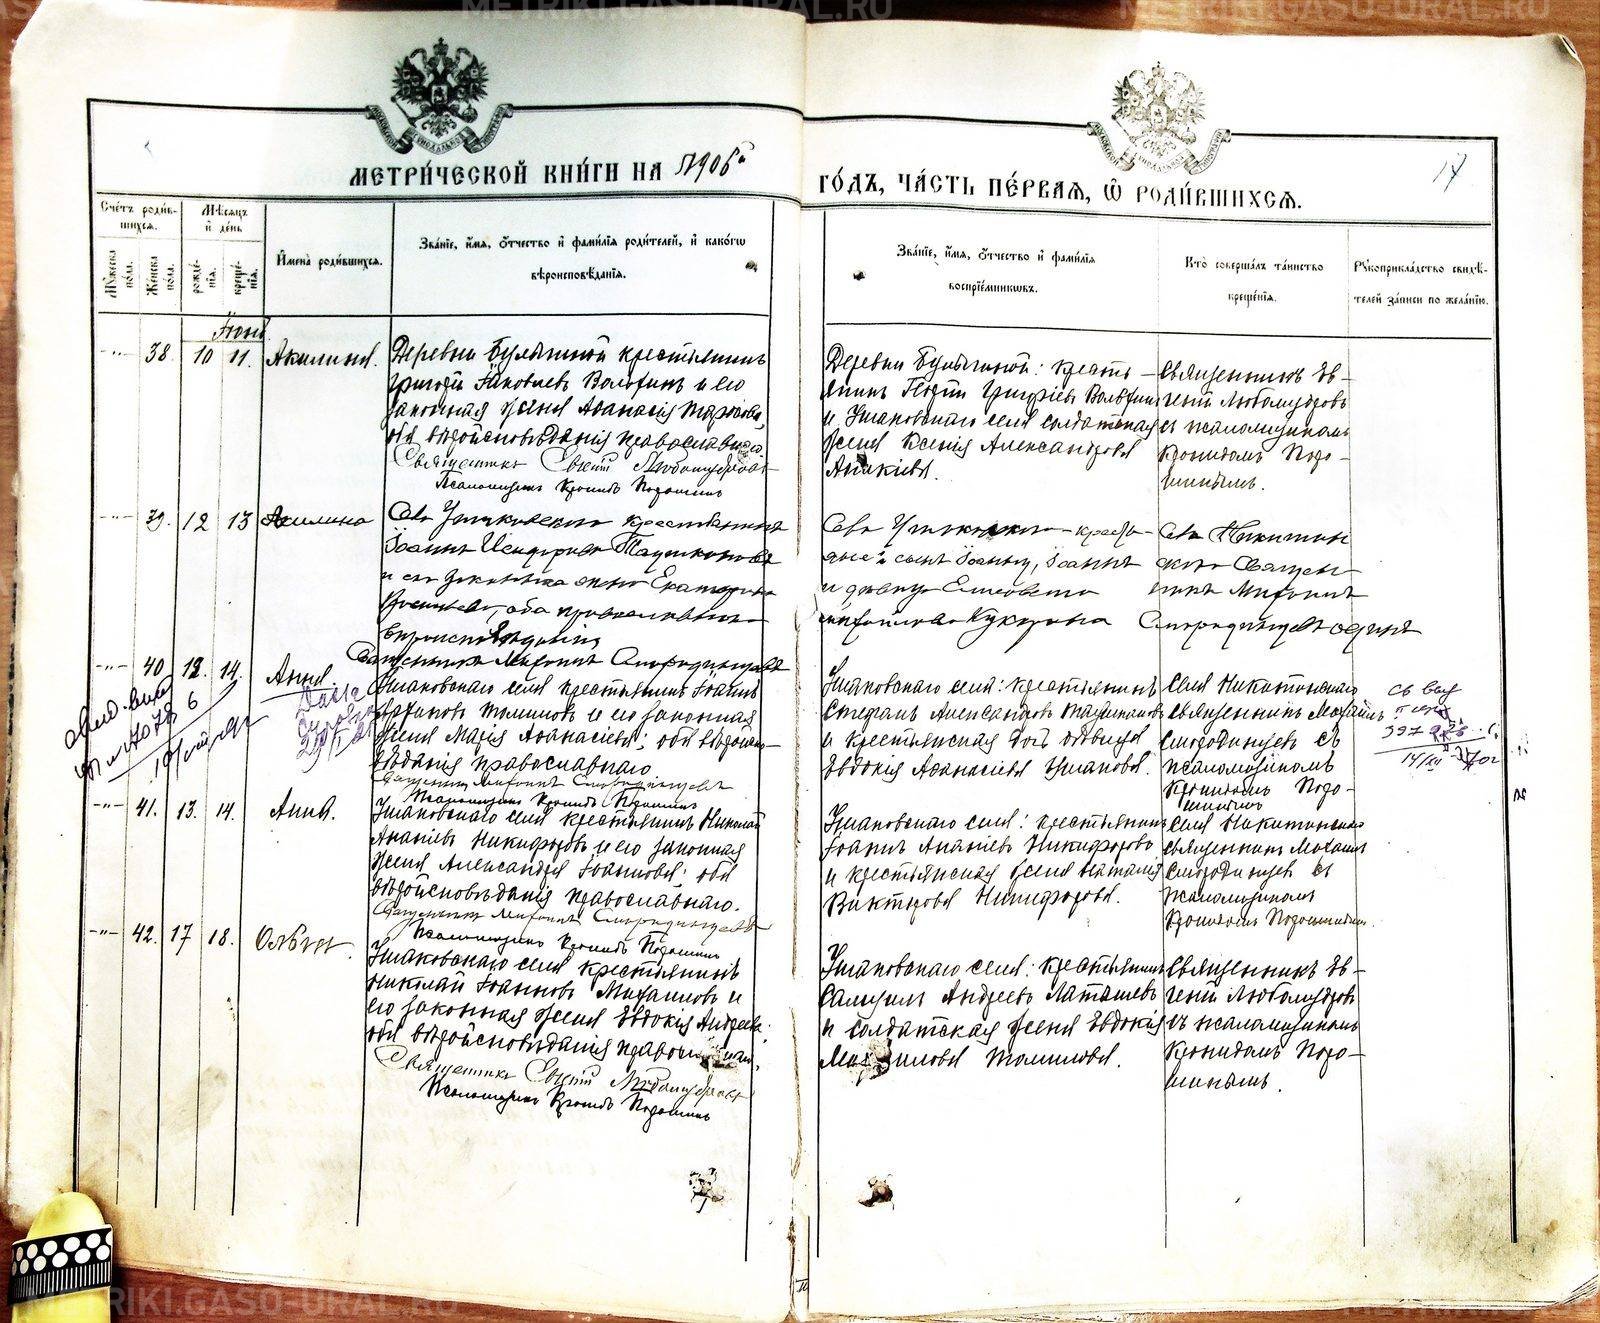 METRIKI.GASO-URAL.RU
METRIKI.GASO-URAL.RU
МЕТРИ́ЧЕСКОЙ КНИ́ГИ НА 1906й
ГО́ДЪ, ЧА́СТЬ ПЕ́РВАЯ, Ѡ҆ РОДИ́ВШИХСЯ.
17
Сче́тъ роди́в-
шихся.
Мѣ́сяцъ
и҆ де́нь
Мꙋ́жеска по́ла.
Же́нска по́ла.
рожде́-
нїѧ.
креще́-
нїѧ.
И҆мена̀ роди́вшихся.
Зва́нїе, и҆́мѧ, ѻ҆́тчество и҆ фами́лїѧ роди́телей, и҆ како́гѡ
вѣроисповѣ́данїѧ.
Зва́нїе, и҆́мѧ, ѻ҆́тчество и҆ фами́лїѧ
воспрїе́мникѡвъ.
Кто̀ соверша́лъ та́инство
креще́нїѧ.
Рꙋкоприкла́дство свидѣ́-
телей за́писи по жела́нїю.
Іюнь
-"- 38. 10 11. Акилина.
Деревни Булыгиной крестьянинъ
Григорій Іаковлевъ Волегинъ и его
законная жена Аѳанасія Маркова,
оба вѣроисповѣданія православнаго.
Священникъ Евгеній Любомудровъ
Псаломщикъ Кронидъ Порошинъ
Деревни Булыгиной: кресть-
янинъ Григоріевъ Волегинъ
и Ушаковскаго села солдатская
жена Ксенія Александрова
Аникіева.
Священникъ Ев-
геній Любомудровъ
съ псаломщикомъ
Кронидомъ Поро-
шинымъ.
-"- 39. 12 13 Акилина
Села Ушаковскаго крестьянинъ
Іоаннъ
и его законная жена Екатерина
оба православнаго
вѣроисповѣданія
Священникъ Михаилъ Смородинцевъ
Села Ушаковскаго кресть-
и дѣвица Елисавета
Села Никитин-
скаго Священ-
никъ Михаилъ
Смородинцевъ одинъ
-"- 40 12. 14. Анна
Ушаковскаго села крестьянинъ Іоаннъ
Томиловъ и его законная
жена Марія Аѳанасіева; оба вѣроиспо-
вѣданія православнаго
Священникъ Михаилъ Смородинцевъ
Псаломщикъ Кронидъ Порошинъ
Ушаковскаго села: крестьянинъ
Стефанъ Александровъ
и крестьянская дочь дѣвица
Евдокія Аѳанасіева Ушакова.
Села Никитинскаго
священникъ Михаилъ
Смородинцевъ съ
псаломщикомъ
Кронидомъ Поро-
шинымъ
-"- 41. 13. 14. Анна.
Ушаковскаго села крестьянинъ Николай
Ананіевъ Никифоровъ и его законная
жена Александра Іоаннова; оба
вѣроисповѣданія православнаго.
Священникъ Михаилъ Смородинцевъ
Псаломщикъ Кронидъ Порошинъ
Ушаковскаго села: крестьянинъ
Іоаннъ Ананіевъ Никифоровъ
и крестьянская жена Наталія
Викторова Никифорова.
Села Никитинскаго
священникъ Михаилъ
Смородинцевъ съ
псаломщикомъ
Кронидомъ Порошинымъ.
-"- 42. 17 18. Ольга.
Ушаковскаго села крестьянинъ
Николай Іоанновъ Михайловъ и
его законная жена Евдокія Андреева;
оба вѣроисповѣданія
Священникъ Евгеній Любомудровъ
Псаломщикъ Кронидъ Порошинъ
Ушаковскаго села: крестьянинъ
Самуилъ Андреевъ Латышевъ
и солдатская жена Евдокія
Томилова.
Священникъ Ев-
геній Любомудровъ
съ псаломщикомъ
Кронидомъ Поро-
шинымъ.
METRIKI.GASO-URAL.RU
METRIKI.GASO-URAL.RU